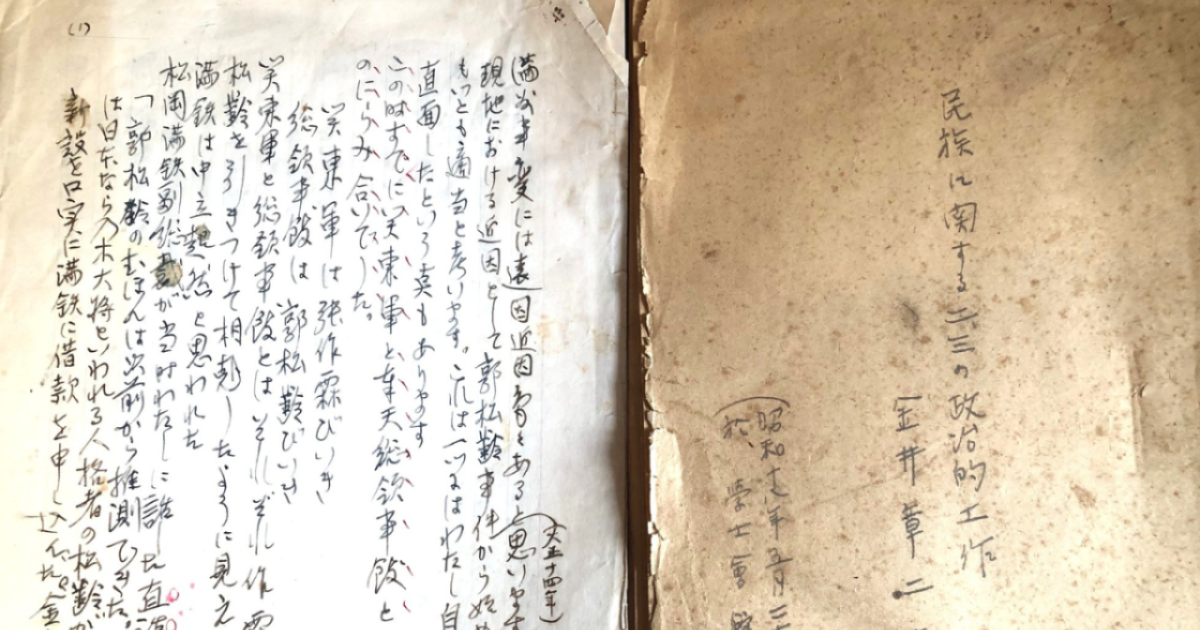 民族に関する二三の政治的工作
金井章二
(昭和
於 學士會
(1)
(大正十四年)
満洲事変には遠因近因多々あると思います
現地における近因として郭松齢事件から始め
もっとも適当と考います。これは一つはわたし自
直面したという点もあります
この時すでに関東軍と奉天総領事館と
のにらみ合いで)した。
関東軍は張作霖びいき
総領事館は郭松齢びいき
関東軍と総領事館とはそれぞれ作霖
松齢を引きつけて相剋したように見え
満鉄は中立超然と思われた
松岡満鉄副総裁が当時わたしに語った直話
「郭松齢のむほんは以前から推測できた。
は日本なら乃木大将といわれる人格者の松齢が
新設を口実に満鉄に借款を申し込んだ。金